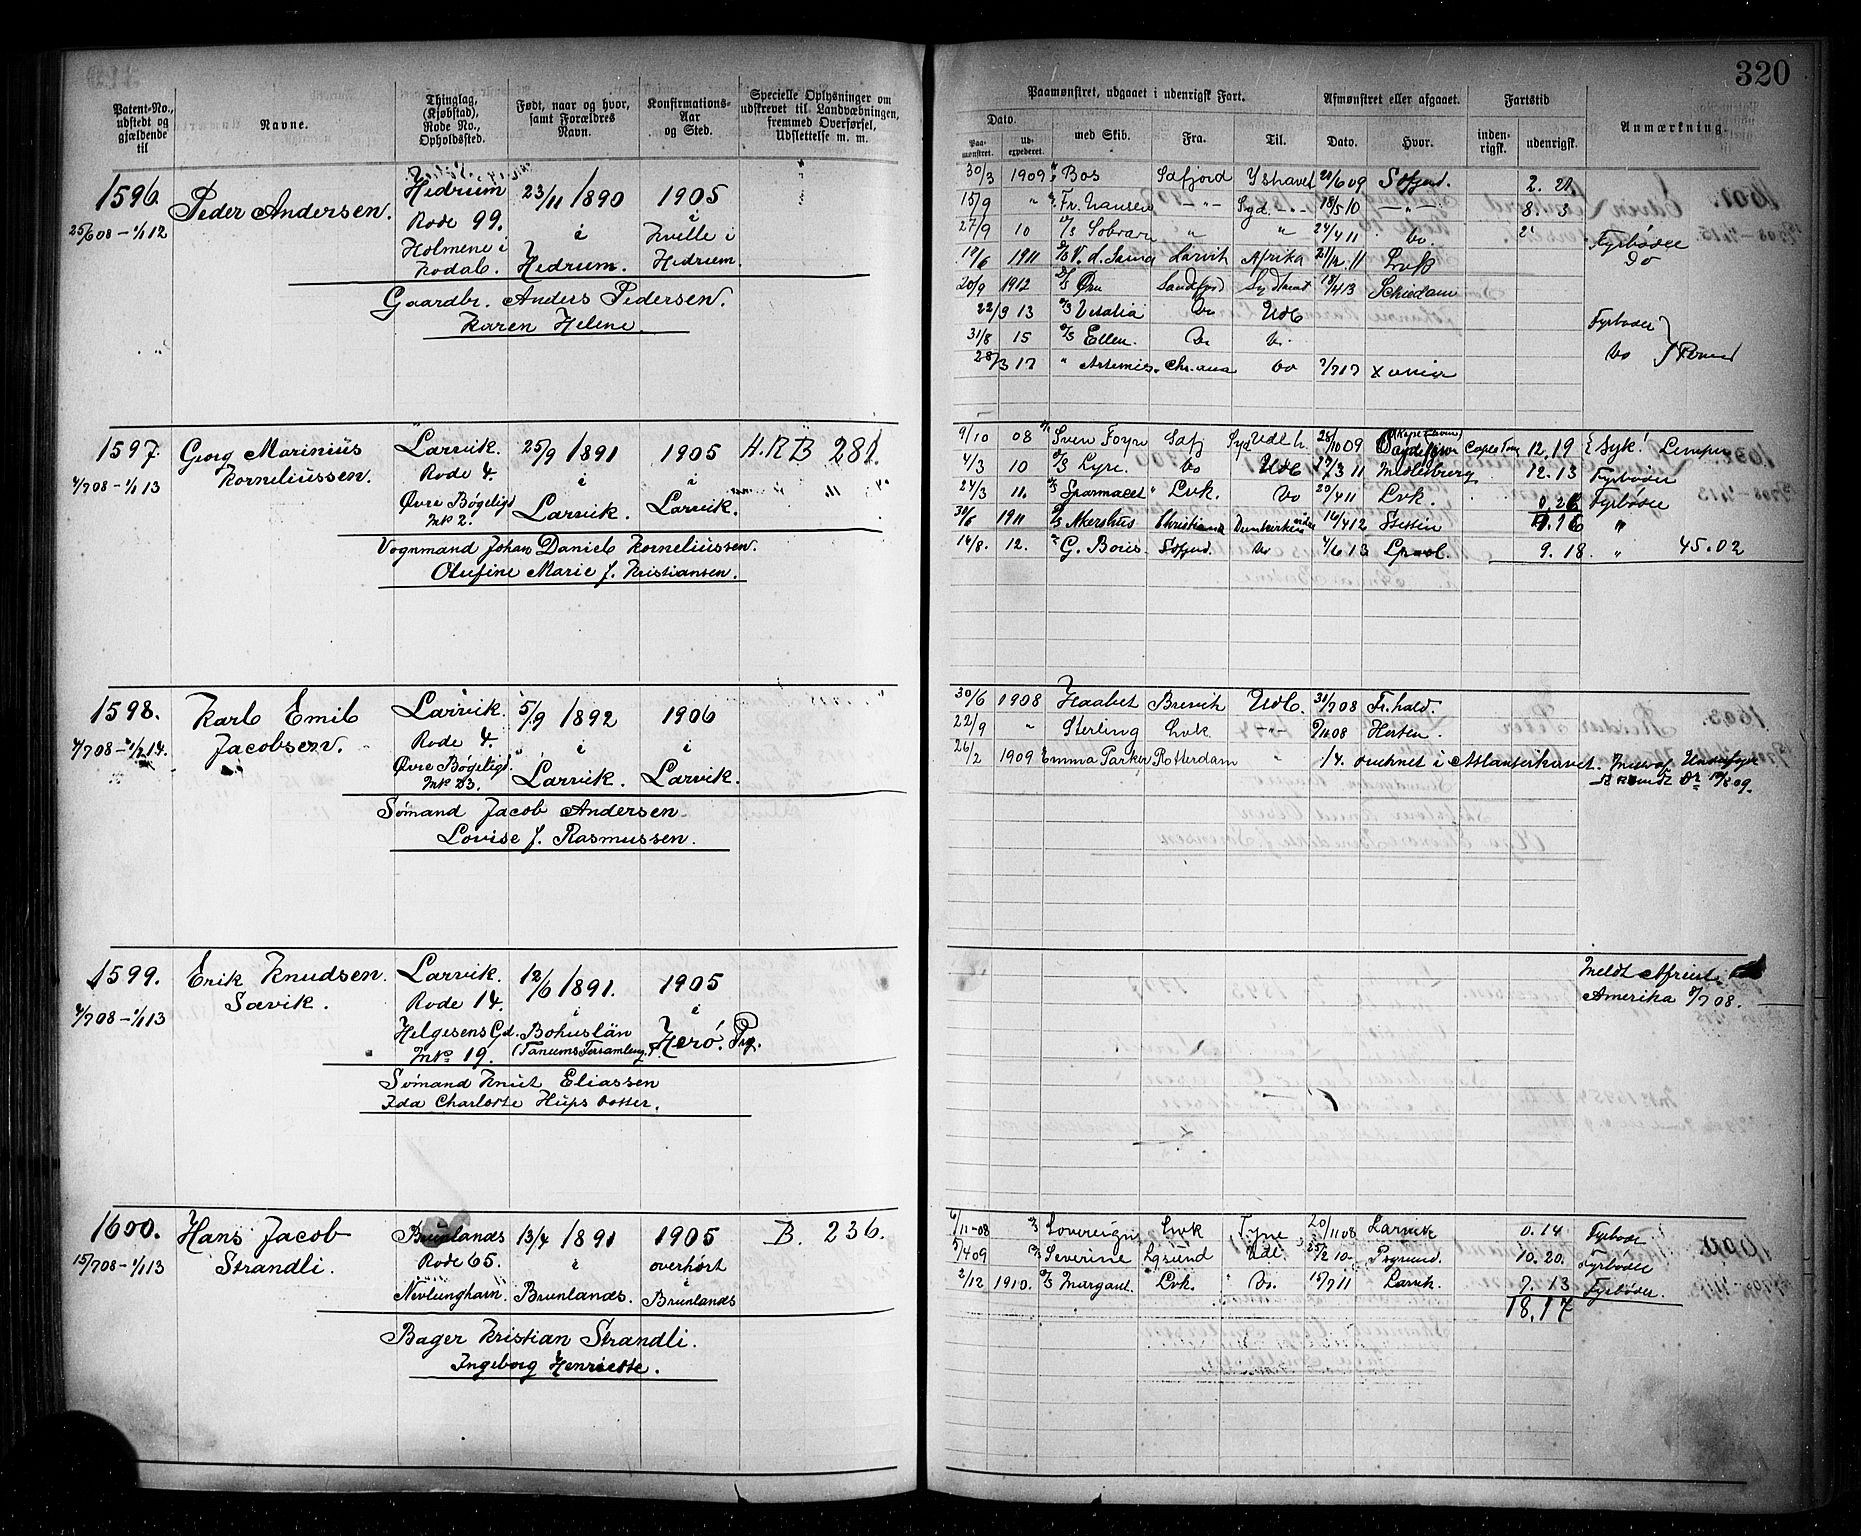 320
Patent-No., udstedt og gjældende til
Navne.
Thinglag, (Kjøbstad), Rode No., Opholdssted.
Født, naar og hvor, samt Forældres Navn.
Konfirmations-Aar og Sted.
Specielle Oplysninger om udskrevet til Landvæbningen, fremmed Overførsel, Udslettelse m. m.
Paamønstret, udgaaet i udenrigsk Fart.
Dato.
Paamønstret.
Udexpederet.
med Skib.
Fra.
Til.
Afmønstret eller afgaaet.
Dato.
Hvor.
Fartstid
indenrigsk.
udenrigsk.
Anmærkning.
1596. Peder Andersen. Hedrum 23/11 1890 1905
25/608 – 1/1 12 Rode 99. i i
Holmene i Kodal. Hedrum. Kvelle i Hedrum.
Gaardbr. Anders Pedersen.
Karen Helene.
30/3 1909 Bos Safjord Ishavet 609 Sfjord. 2. 21
15/9 " Fr. Nansen — " — Syd - " - 18/5 10 — " — 8. 3
27/9 10 Sobraon " " 24/4 11 Do.
1911 Larvik Afrika 11 Lvk Fyrbøder
20/9 1912 Ørn Sandfjord Sydhavet 18/413 Schiedam Do
22/9 13 Vestalia Do Udl
31/8 15 Ellen. Do Do. Fyrbøder
28/3 17 " Artemis. Chr.ania Do 717 Xania Do
1597. Georg Marinius Larvik. 25/9 1891 1905 H.R B 281.
4/708 – 1/1 13 Korneliussen. Rode 4. i i
Øvre Bøgeligd Mk 2. Larvik. Larvik.
Vognmand Johan Daniel Korneliussen.
Olefine Marie f. Kristiansen.
9/10 08 Sven Foyn Safj Syd 28/10 09 Cape Town 12. 19 Syk! Lemper
4/3 10 Lyre. Do Udl 17/3 11 Middlesburg 12. 13 Fyrbøder
24/3 11. Sparmacet " Lvk. Do 20/4 11 Lvk. 0. 26 Fyrbøder
30/6 1911 Akershus Christiania Dunkerken 16/4 12 Stettin 9. 16 "
14/8. 12. G. Boris Sfjord. Do 4/6 13 9. 18 " 45. 02
1598. Karl Emil Larvik. 5/9 1892 1906
4/708 – 1/1 14. Jacobsen. Rode 4. i i
Øvre Bøgeligd Mk 23. Larvik. Larvik.
Sømand Jacob Andersen
Lovise f. Rasmussen.
30/6 1908 Haabet Brevik Udl. 31/708 Fr.hald.
22/9 " Sterling Lvk " 9/1108 Horten.
26/2 1909 Emma Parker Rotterdam " 14. druknet i Atlanterhavet.
1599. Erik Knudsen Larvik. 12/6 1891. 1905
4/708 – 1/1 13 Savik. Rode 14. i i
Helgesens Gd. Mk 19. Bohuslän (Tanums Forsamling). Herø. Prg.
Sømand Knut Eliassen
Ida Charlotte Hüps Dotter.
Meldt Afreist
Amerika 8/7 08.
1600. Hans Jacob Brunlands 13/4 1891 1905 B. 236.
15/708 – 1/1 13 Strandli. Rode 65. i overhørt i
Nevlunghavn. Brunlands. Brunlands
Bager Kristian Strandli.
Ingeborg Henriette.
6/11-08 Sovereign Lvk Tyne 20/11 08 Larvik 0. 14 Fyrbøder
5/4 09 Severine Lgsund Udl. 25/2 10 Prgrund 10. 20. Fyrbøder
2/12 1910. Margaret " Lvk. " Do. 15/7 11 Larvik. 7. 13 Fyrbøder.
18. 17